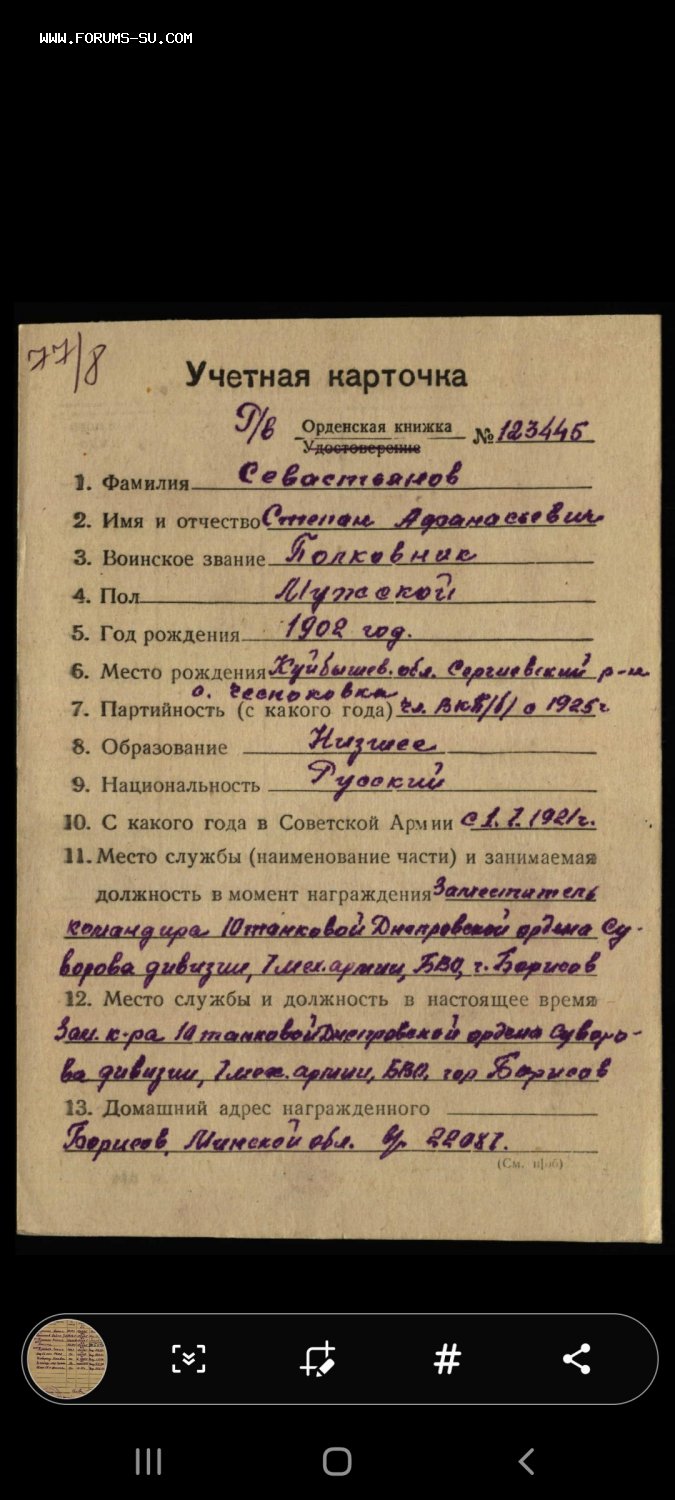 WWW.FORUMS-SU.COM
77/8
Учетная карточка
Г/в Орденская книжка № 123445
Удостоверение
1. Фамилия Севастьянов
2. Имя и отчество Степан Афанасьевич
3. Воинское звание Полковник
4. Пол Мужской
5. Год рождения 1902 год.
6. Место рождения Куйбышев. обл. Сергиевский р-н
с. Чесноковка
7. Партийность (с какого года) чл. ВКП/б/ с 1925г
8. Образование Низшее
9. Национальность Русский
10. С какого года в Советской Армии с 1.7.1921г.
11. Место службы (наименование части) и занимаемая
должность в момент награждения Заместитель
командира 10 танковой Днепровской ордена Су-
ворова дивизии, 7 мех. армии, БВО, г. Борисов
12. Место службы и должность в настоящее время
Зам. к-ра 10 танковой Днепровской ордена Суворо-
ва дивизии, 7 мех. армии, БВО, гор Борисов
13. Домашний адрес награжденного
Борисов, Минской обл. 22087.
(См. н/об)